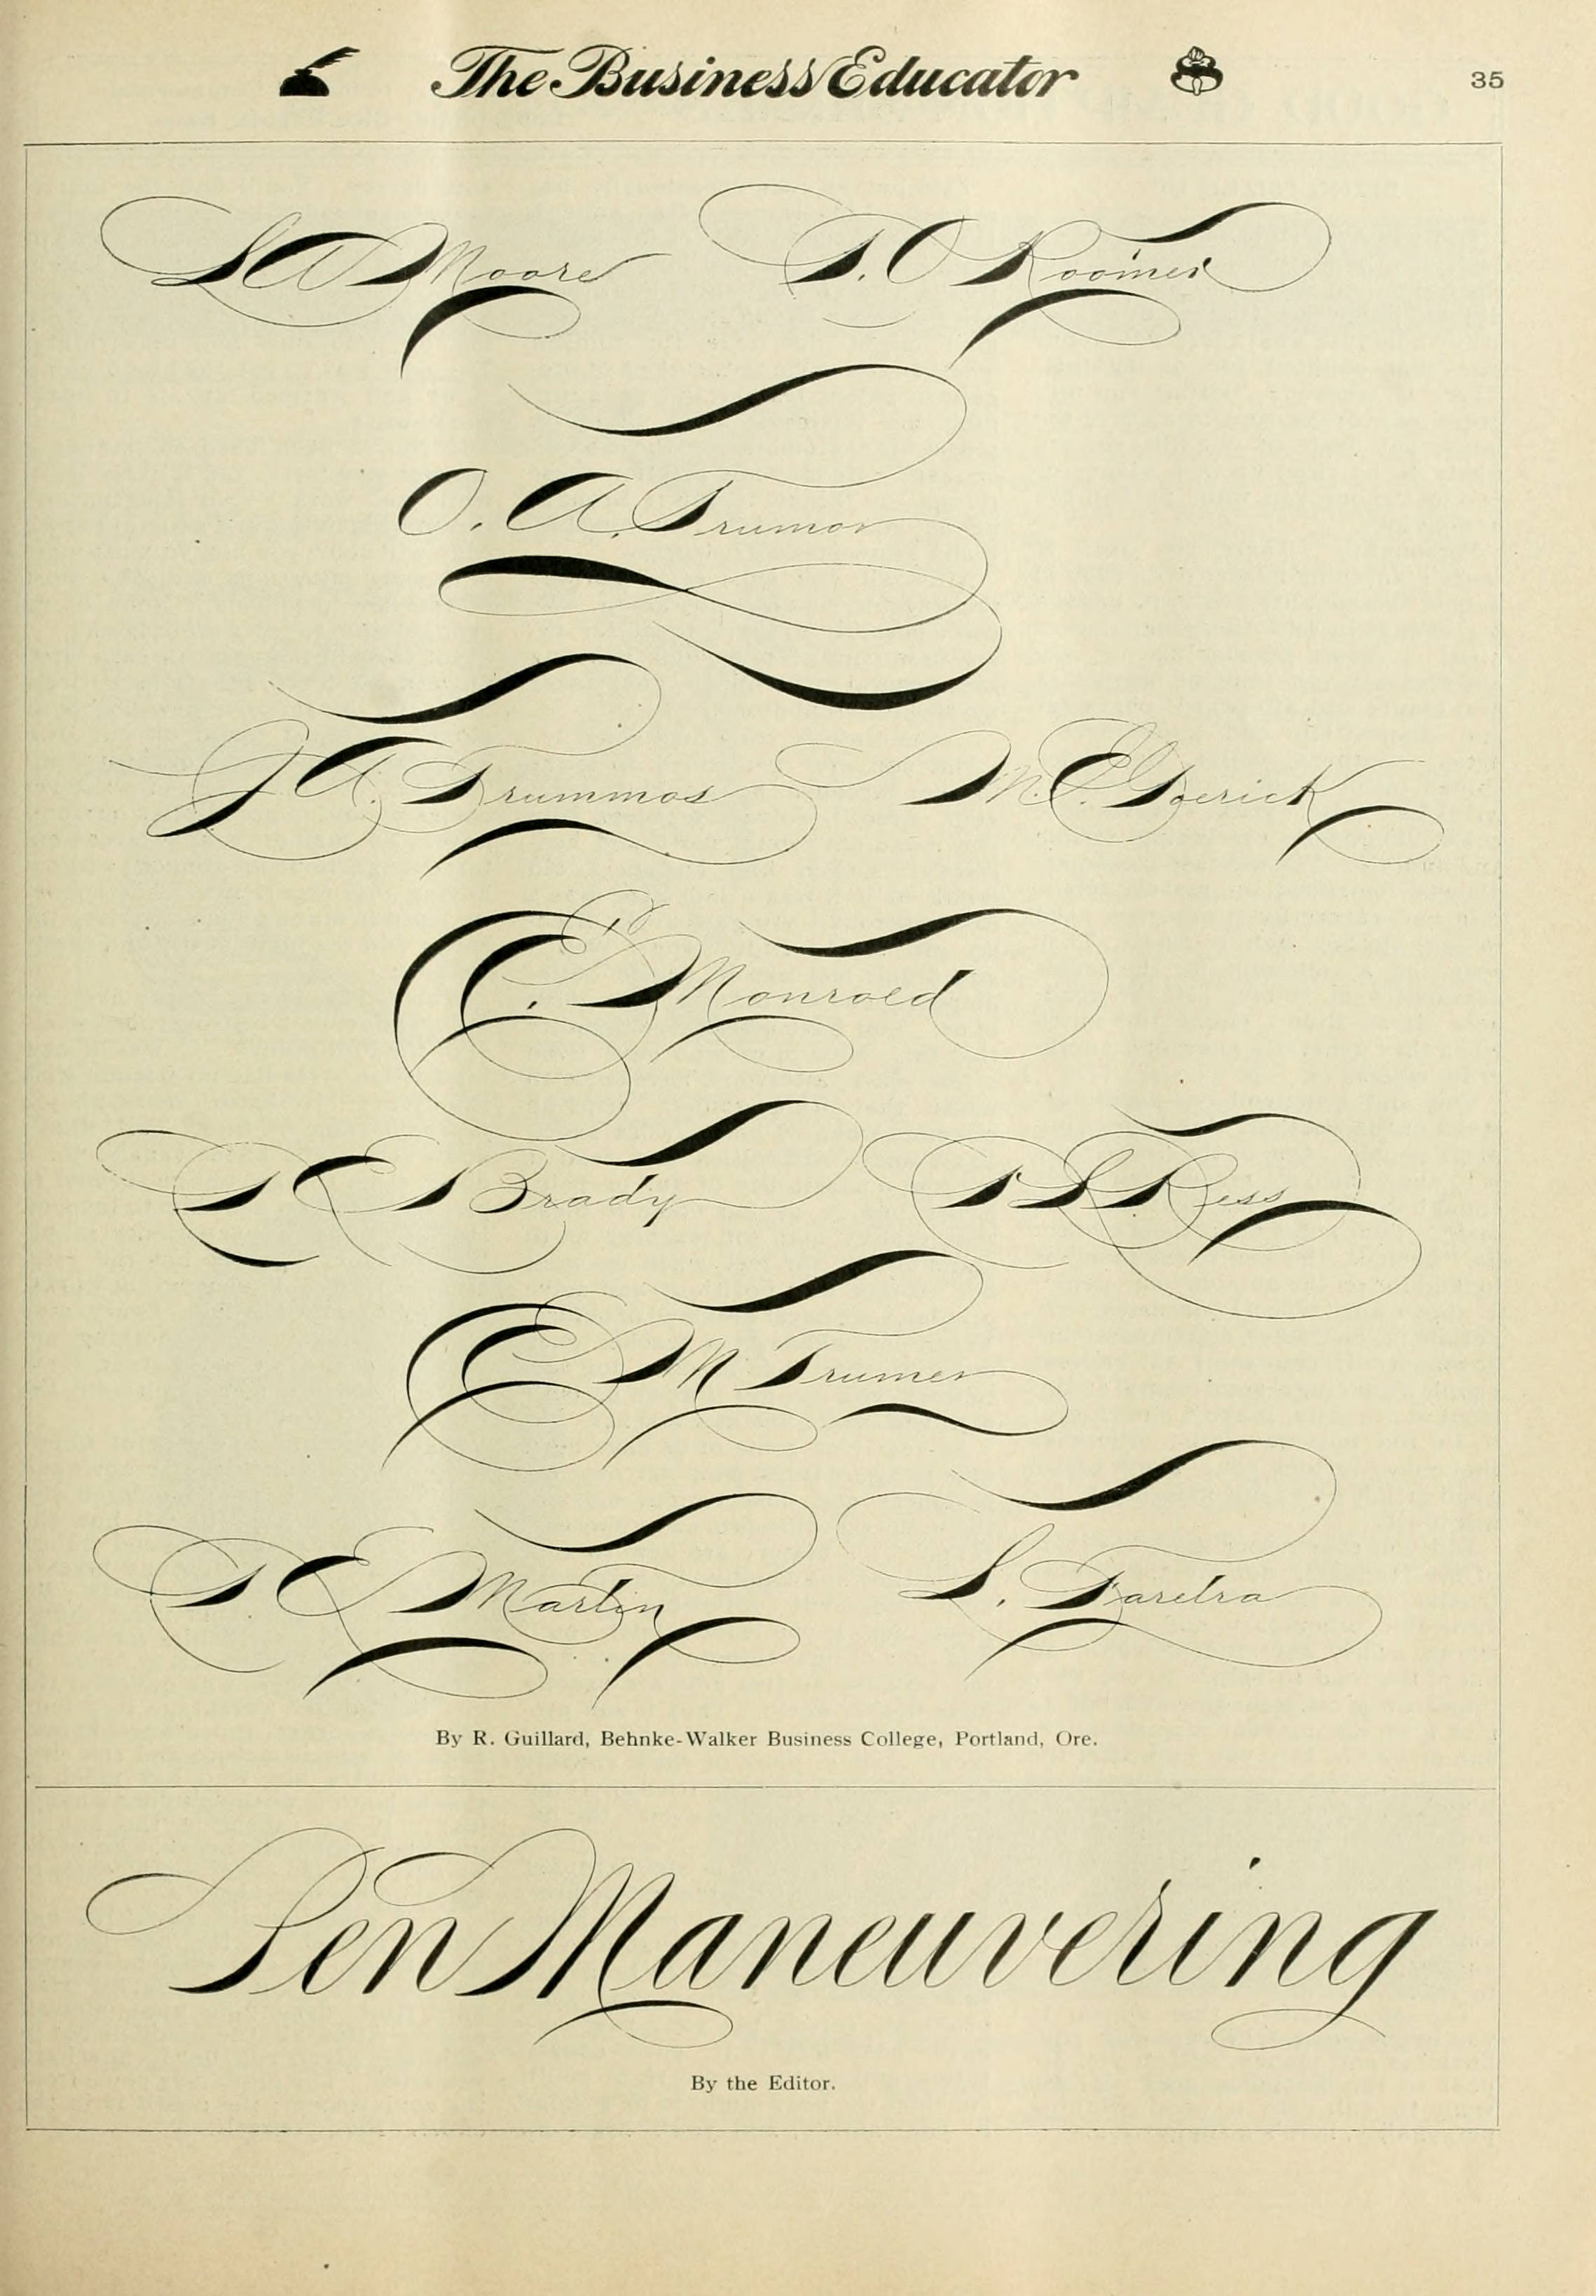 The Business Educator 35
L A Moore
O Roomer
O. A. Trumor
J A. Drummos
M. E. Derick
C. Monroed
E Brady
Ress
C M Trumer
E Martin
S. Daretra
By R. Guillard, Behnke-Walker Business College, Portland, Ore.
Pen Maneuvering
By the Editor.